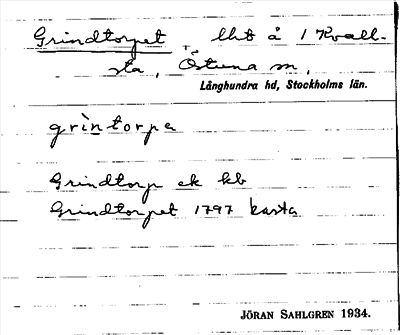 Grindtorpet lht å 1 Kvall-
sta, Östuna sn,
Långhundra hd, Stockholms län.
grìntorpa
Grindtorp ek kb
Grindtorpet 1797 karta
JÖRAN SAHLGREN 1934.